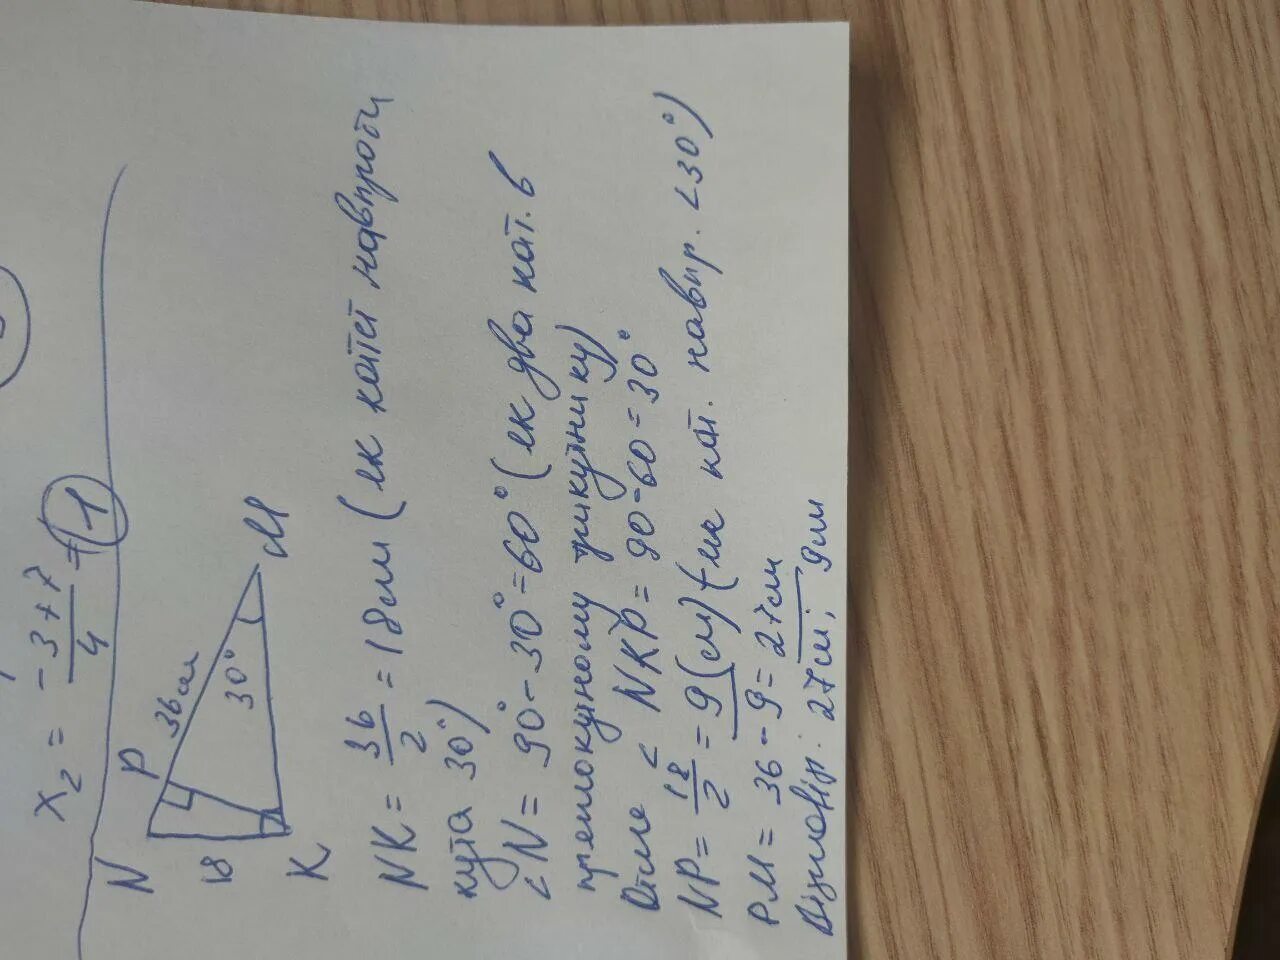 x₂ = (-3+7)/4 = 1
N
P
36см
30°
18
K
M
NK = 36/2 = 18см (як катет навпроти
кута 30°)
<N = 90° - 30° = 60° (як два кат. в
прямокутному трикутнику)
Отже < NKP = 90-60=30°
NP = 18/2 = 9(см) (як кат. навпр. <30°)
PM = 36-9=27см
Відповір: 27см; 9см